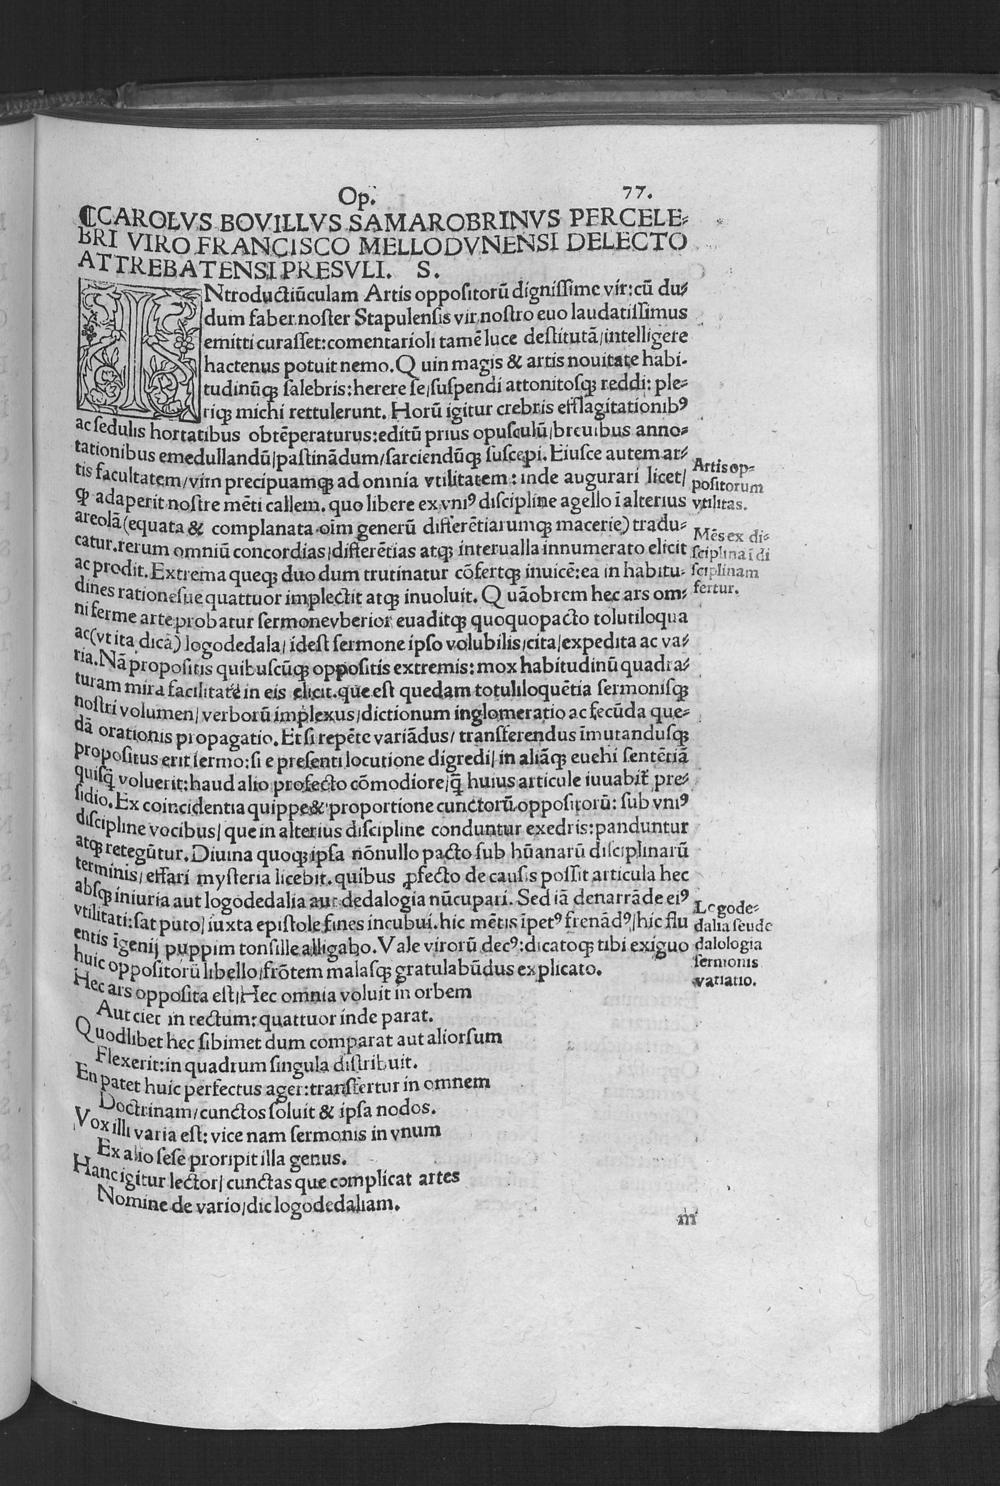 Op. 77.
⁋CAROLVS BOVILLVS SAMAROBRINVS PERCELE⸗
BRI VIRO FRANCISCO MELLODVNENSI DELECTO
ATTREBATENSI PRESVLI. S.
INtroductiūculam Artis oppositorū dignissime vir: cū du⸗
dum faber noster Stapulensis vir nostro euo laudatissimus
emitti curasset: comentarioli tamē luce destitutā/ intelligere
hactenus potuit nemo. Quin magis & artis nouitate habi-
tudinūqꝫ salebris: herere se/ suspendi attonitosqꝫ reddi: ple⸗
riqꝫ michi rettulerunt. Horū igitur crebris efflagitationibꝰ
ac sedulis hortatibus obtēperaturus: editū prius opusculū/ breuibus anno⸗
tationibus emedullandū/ pastinādum/ sarciendūqꝫ suscepi. Eiusce autem ar⸗
tis facultatem/ vim precipuamqꝫ ad omnia vtilitatem: inde augurari licet/
ꝙ adaperit nostre mēti callem. quo libere ex vniꝰ discipline agello ī alterius
areolā (equata & complanata oīm generū differētiarumqꝫ macerie) tradu⸗
catur. rerum omniū concordias/ differētias atqꝫ interualla innumerato elicit
ac prodit. Extrema queqꝫ duo dum trutinatur cōfertqꝫ inuicē: ea in habitu⸗
dines rationesue quattuor implectit atqꝫ inuoluit. Quāobrem hec ars om⸗
ni ferme arte probatur sermone vberior euaditqꝫ quoquo pacto tolutiloqua
ac (vt ita dicā) logodedala/ idest sermone ipso volubilis/ cita/ expedita ac va⸗
ria. Nā propositis quibuscūqꝫ oppositis extremis: mox habitudinū quadra⸗
turam mira facilitate in eis elicit. que est quedam totuliloquētia sermonisqꝫ
nostri volumen/ verborū implexus/ dictionum inglomeratio ac fecūda que⸗
dā orationis propagatio. Et si repēte variādus/ transferendus īmutandusqꝫ
propositus erit sermo: si e presenti locutione digredi/ in aliāqꝫ euehi sentētiā
quisꝙ voluerit: haud alio profecto cōmodiore/ ꝙ̄ huius articule iuuabit̄ pre⸗
sidio. Ex coincidentia quippe & proportione cunctorū oppositorū: sub vniꝰ
discipline vocibus/ que in alterius discipline conduntur exedris: panduntur
atqꝫ retegūtur. Diuina quoqꝫ ipsa nōnullo pacto sub hūanarū disciplinarū
terminis/ effari mysteria licebit. quibus ꝓfecto de causis possit articula hec
absqꝫ iniuria aut logodedalia aut dedalogia nūcupari. Sed iā denarrāde eiꝰ
vtilitati: sat puto/ iuxta epistole fines incubui. hic mētis īpetꝰ frenādꝰ/ hic flu
entis īgenij puppim tonsille alligabo. Vale virorū decꝰ: dicatoqꝫ tibi exiguo
huic oppositorū libello/ frōtem malasqꝫ gratulabūdus explicato.
Hec ars opposita est/ Hec omnia voluit in orbem
Aut ciet in rectum: quattuor inde parat.
Quodlibet hec sibimet dum comparat aut aliorsum
Flexerit: in quadrum singula distribuit.
En patet huic perfectus ager: transfertur in omnem
Doctrinam/ cunctos soluit & ipsa nodos.
Vox illi varia est: vice nam sermonis in vnum
Ex alio sese proripit illa genus.
Hanc igitur lector/ cunctas que complicat artes
Nomine de vario/ dic logodedaliam.
m
Artis op⸗
positorum
vtilitas.
Mēs ex di⸗
sciplina ī di
sciplinam
fertur.
Logode⸗
dalia seu de
dalologia
sermonis
variatio.